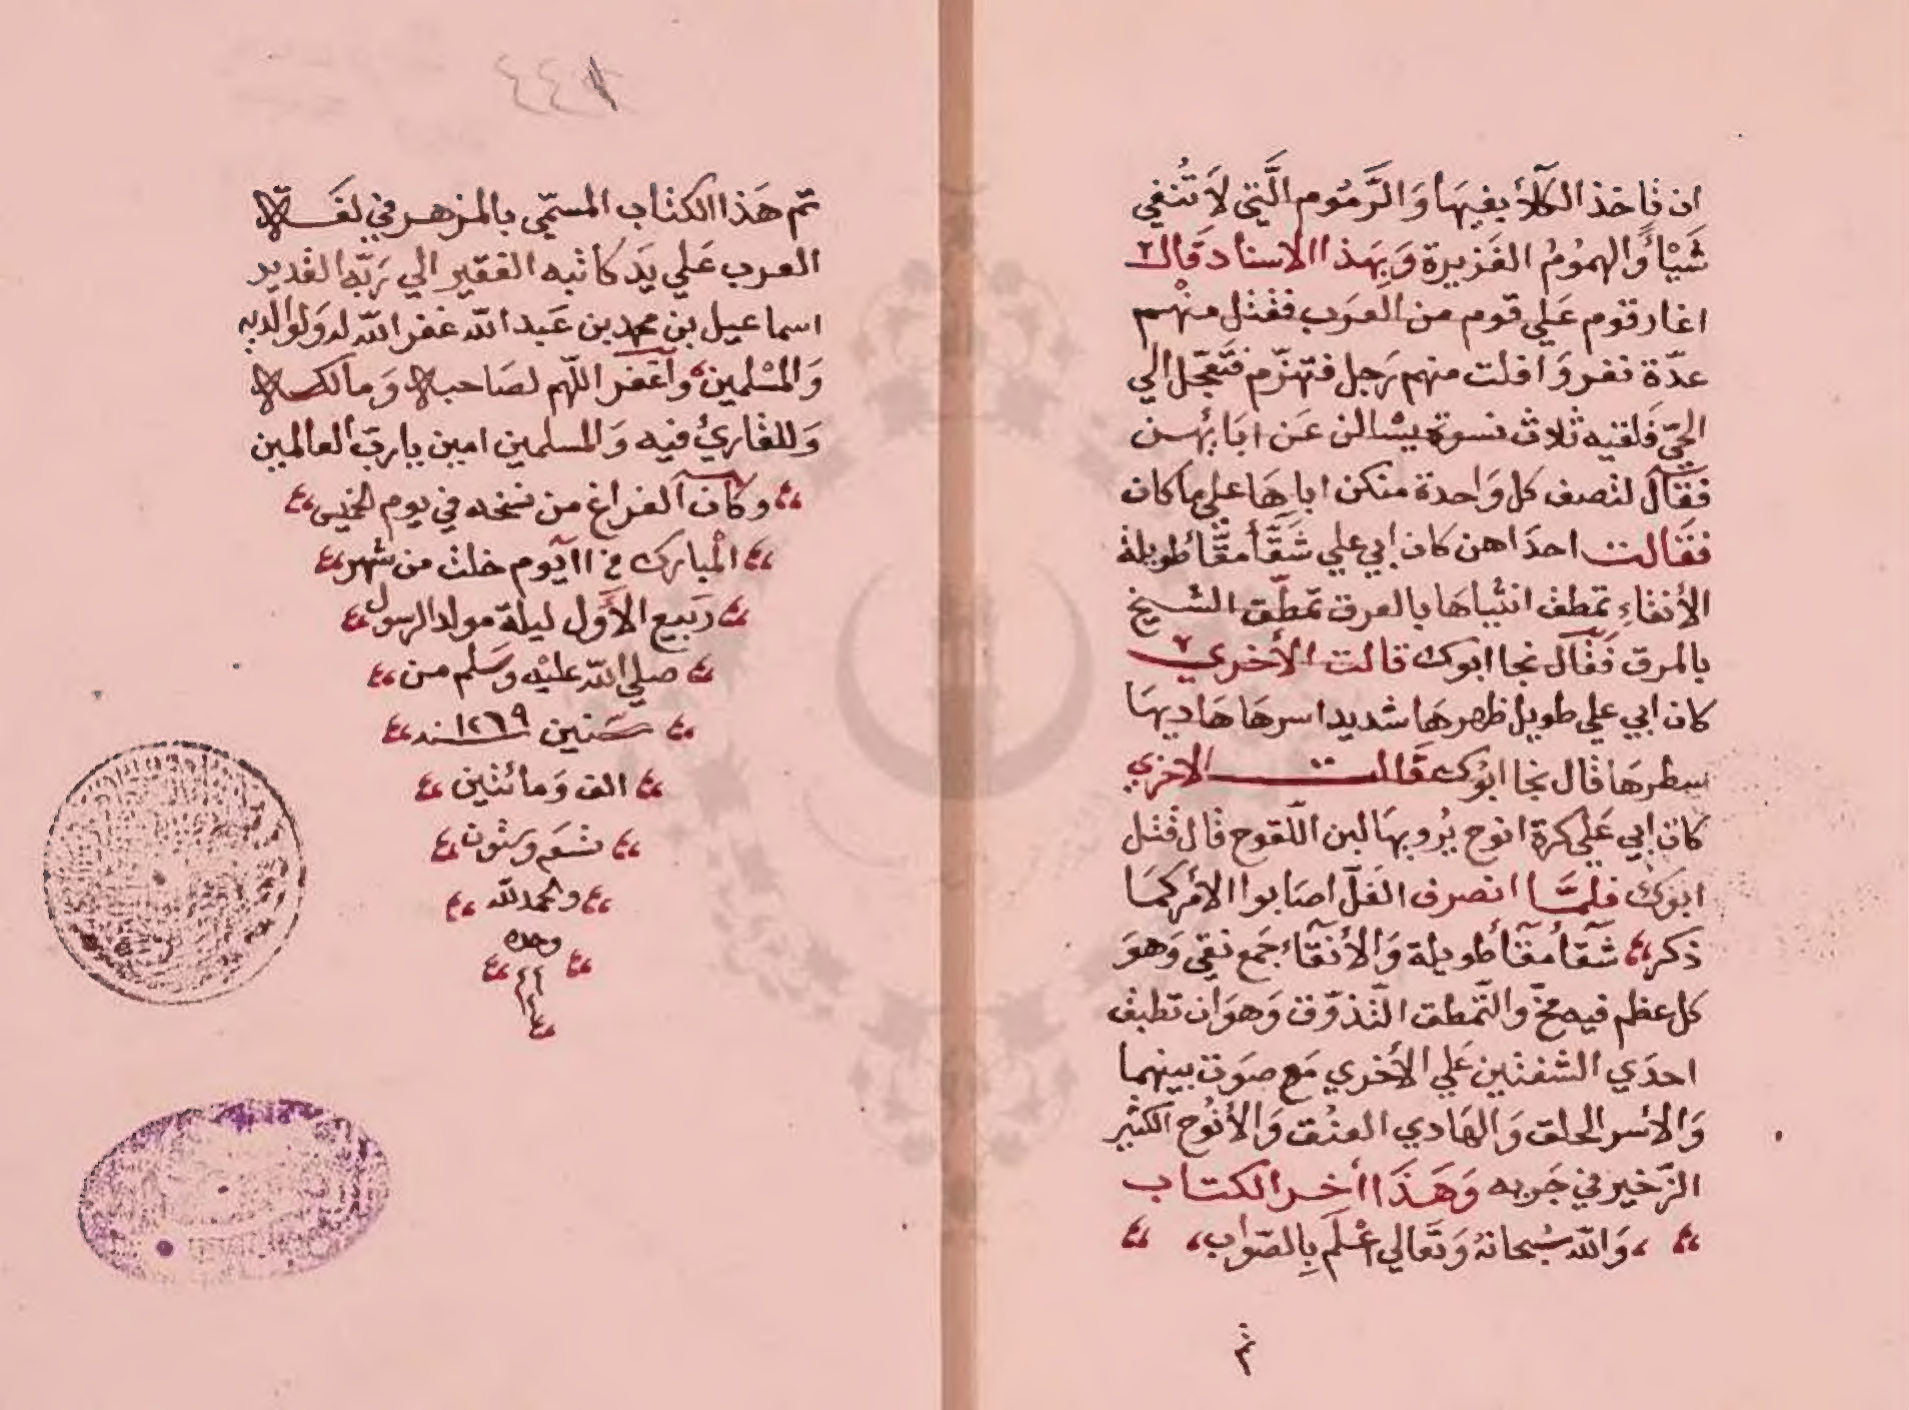 ان ڨاخذ الكلأ بفيها وَالرَّمُوم الَّتي لاَ تُنفي
شَيْأً وَالهمُومُ الغَزيرة وَبِهَذا الاسناد قَال
اغار قوم عَلي قوم من العَرَب فقتل منهْم
عدّة نفر وَافلت منهم رَجل فتهزّم فَتَعجّل الي
الحيّ فَلقيه ثلاث نسوة يسْالن عَن ابَائهن
فقَالَ لتصف كل وَاحدة منكن اباهَا علي ما كان
فقَالت احدَاهن كان ابي علي شَقَّأ مقَّأ طويلة
الأنقاءِ تمطق انثياهَا بالعرق تمَطّق الشيخ
بالمرق فَقَالَ نجا ابوك قالت الأخري
كان ابي علي طويل ظهرهَا شديد اسرهَا هَاديهَا
سطرهَا قال نجا ابوُك قَالت الاخري
كان ابي عَلي كرة انوح يُرويهَا لبن اللّقوح قال قتل
ابوَك فلمّا انصرف الفَلّ اصَابوا الأمر كمَا
ذكر شَقأ مقأ طويلة وَالأنقَاء جمَع نقي وَهوَ
كل عظم فيه مخّ والتّمطق التّذوّق وَهوَ ان تطبق
احدَي الشفتين عَلي الأخري مَع صوَت بينهما
وَالأسر الخلق وَالهَادي العنُق وَالأنوُح الكثير
الزّخير في جَريه وَهَذَا أخر الكتاب
وَاللّه سُبحانهُ وَتَعَالي اعْلَم بِالصّوَاب
تم
تم هَذا الكتاب المسمّي بالمزهر في لغَة
العرب عَلي يَد كاتبه الفقير الي رَبّه القدير
اسماعيل بن محمد بن عَبد اللّه غفر اللّه له وَلوالديه
وَالمسْلمين وأغفر اللّهم لصَاحبه وَمالكه
وَللقاريُ فيه وَالمسلمين امين يارب العالمين
وكانَ الفراغ من نسخه في يوم الخميس
المْبارك في ١١ يوم خلت من شهر
رَبيع الأوَّل ليلة مولد الرسول
صلي اللّه عليْه وسَلم من
سَنين ١٢٦٩ سنه
الف وَمائتين
تسَع وستون
والحمد للّه
وحده